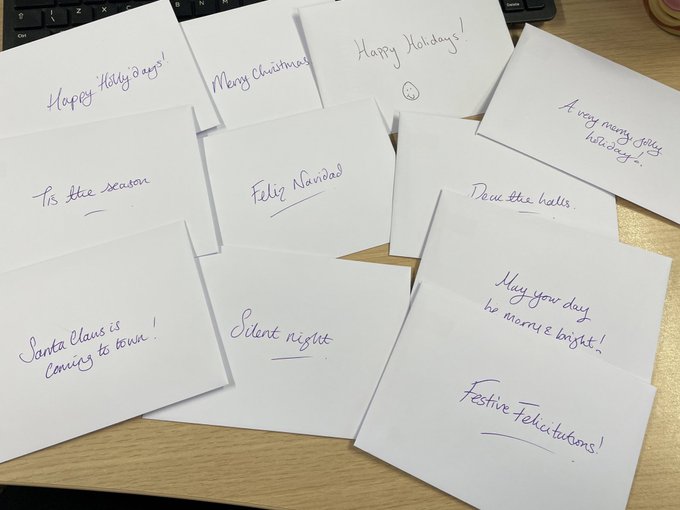 Happy 'Holly'days!
Merry Christmas
Happy Holidays!
A very merry, jolly
holiday!
Tis the season
Feliz Navidad
Deck the halls.
Santa Claus is
coming to town!
Silent night
May your day
be merry & bright!
Festive Felicitations!